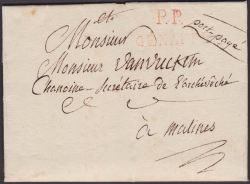 et
Monsieur P.P. port payé
Monsieur
Chanoine - Secrétaire de L'archevêché
à malines